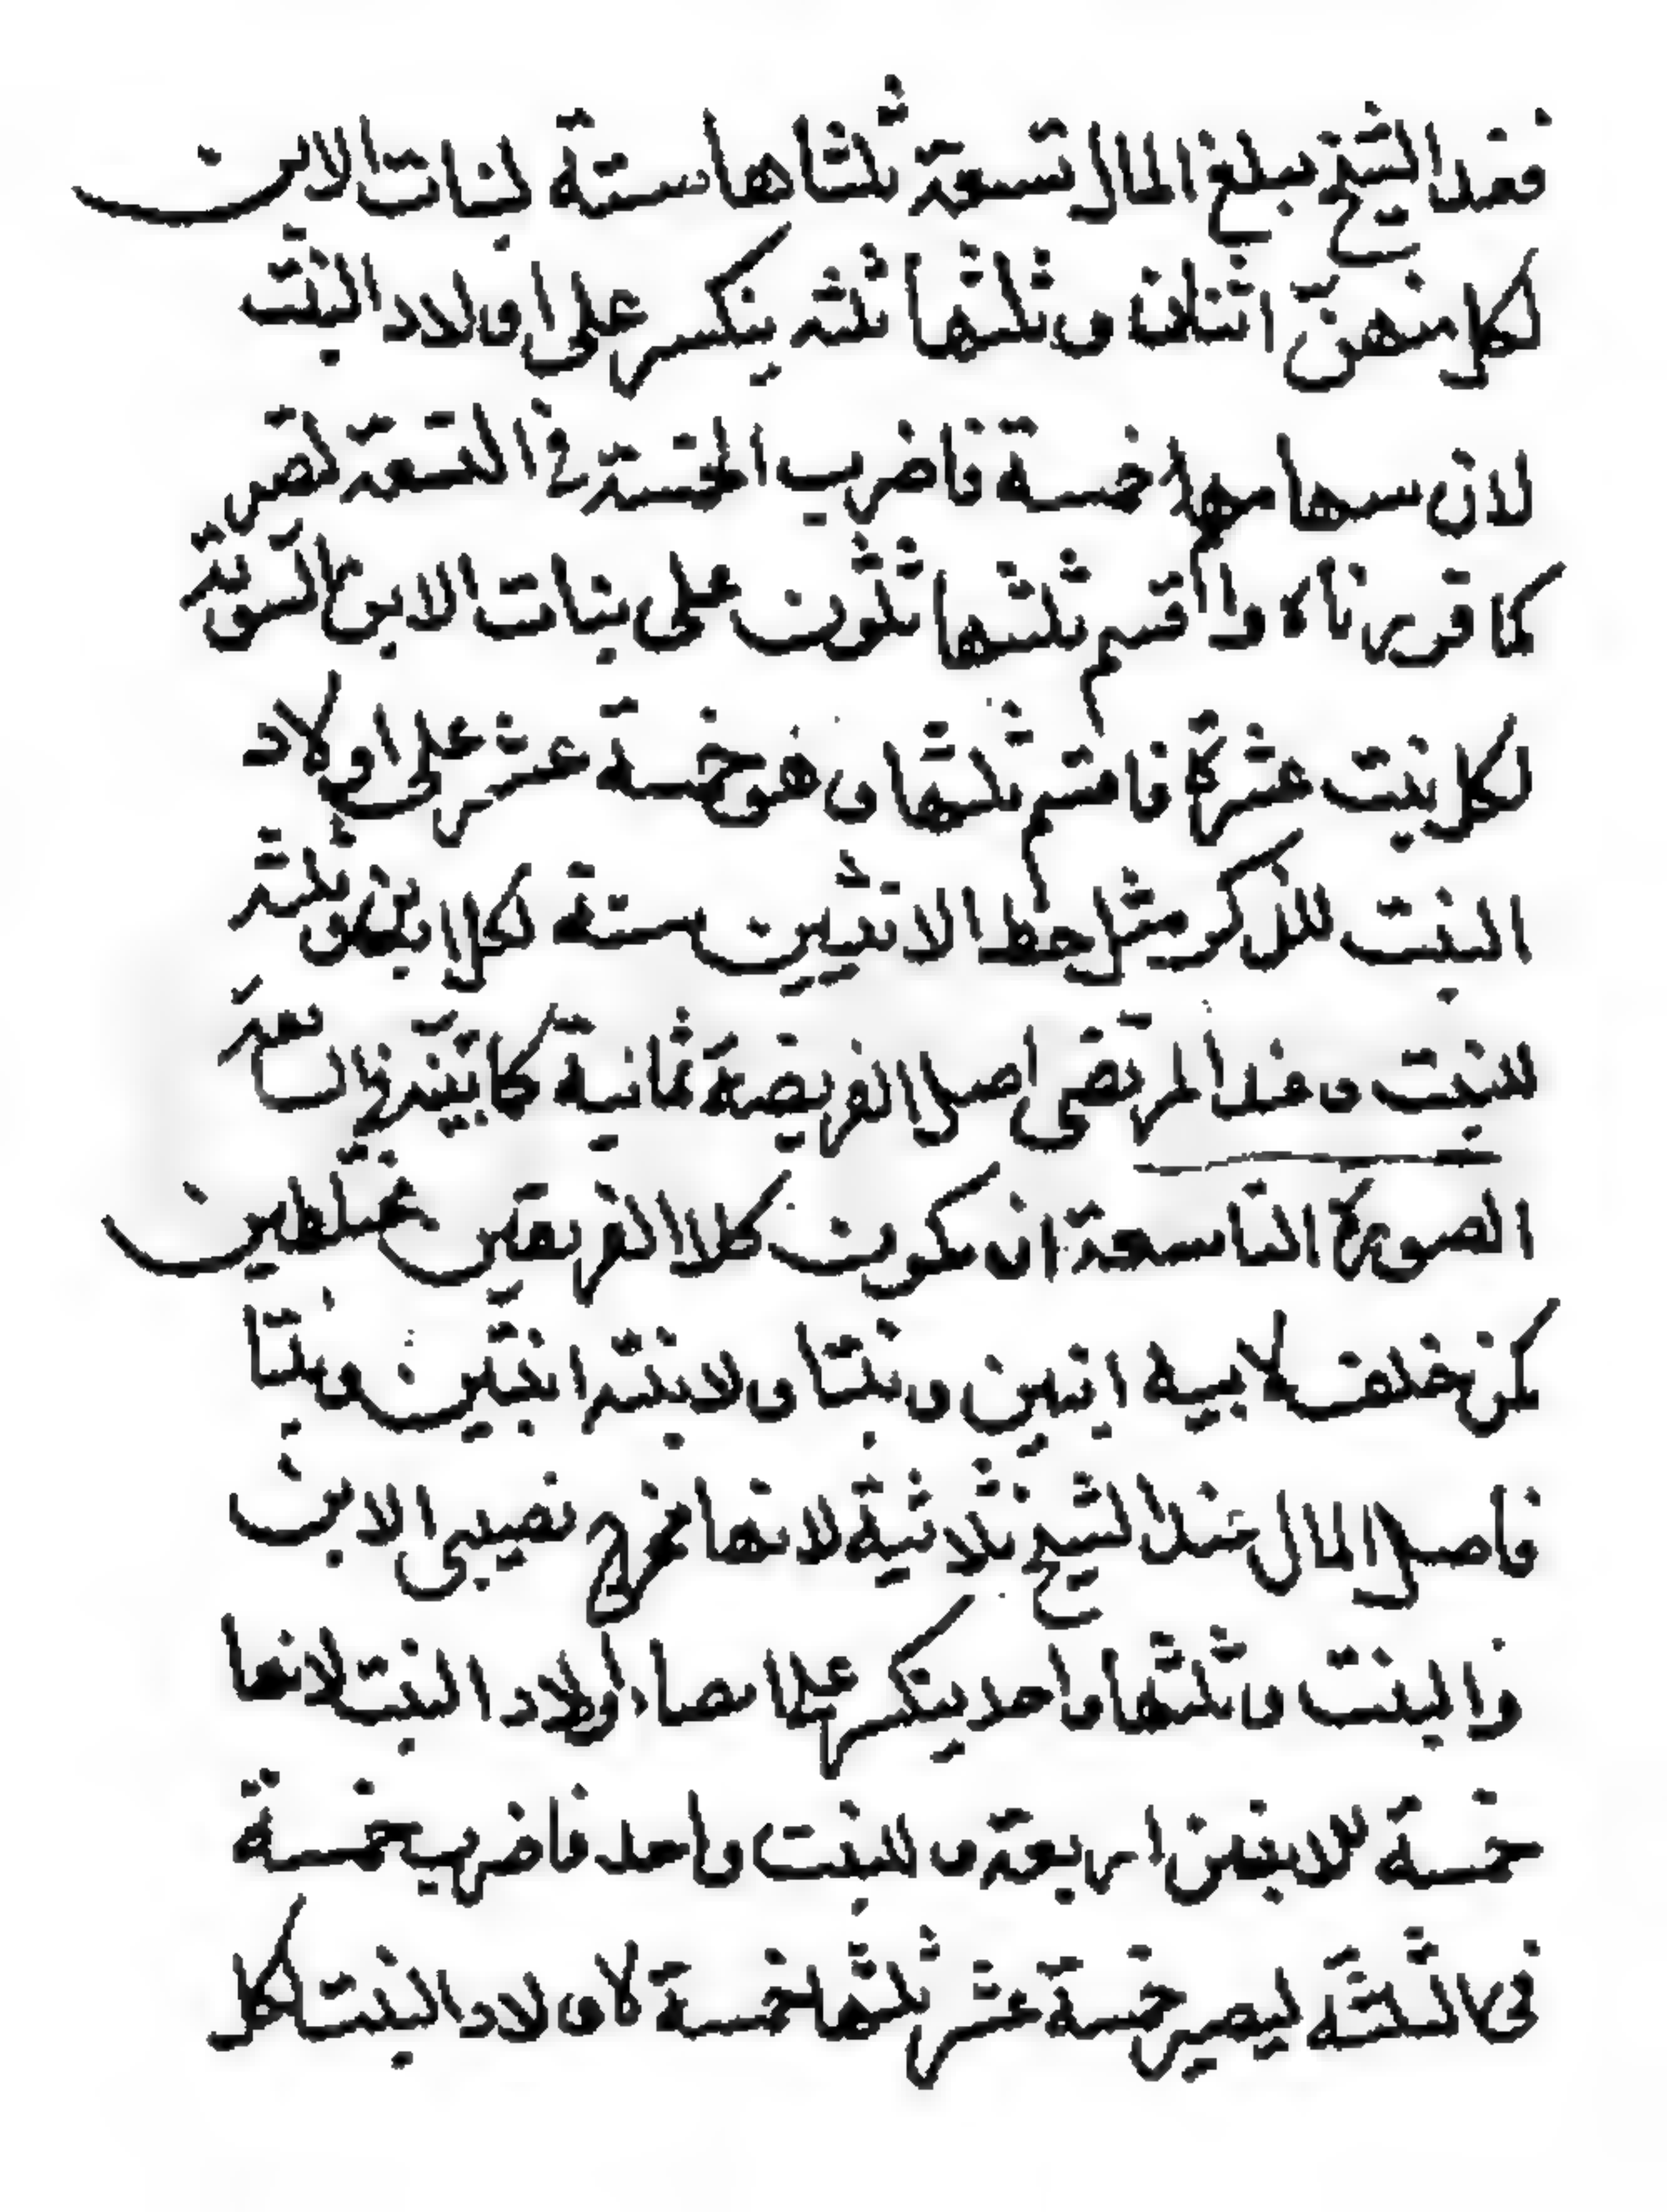 فعند الشيخ مبلغ المال تسعة ثلثاها ستة لبنات الابن
لكل منهن اثنان وثلثها ثلثه ينكسر على اولاد البنت
لان سهامهم خمسة فاضرب الخمسة في التسعة لتصير
كما قررناه واقسم ثلثيها ثلثون على بنات الابن بالسوية
لكل بنت عشرة فاقسم ثلثها وهو خمسة عشر على اولاد
البنت للذكر مثل حظ الانثيين ستة لكل ابن وثلثه
للبنت وعند المرتضى اصل الفريضة ثمانية كما بينه
الصورة التاسعة ان يكون كلا الفريقين مختلطين
كمن خلف لابيه ابنين وبنتا ولابنته ابنتين وبنتا
فاصل المال عند الشيخ ثلاثية لانها مخرج نصيبى الابن
والبنت وثلثها واحد ينكسر على انصباء اولاد البنت لانها
خمسة للابنين اربعة وللبنت واحد فاضرب خمسة
فى الثلثه ليصير خمسة عشر ثلثها خمسة لاولاد البنت لكل